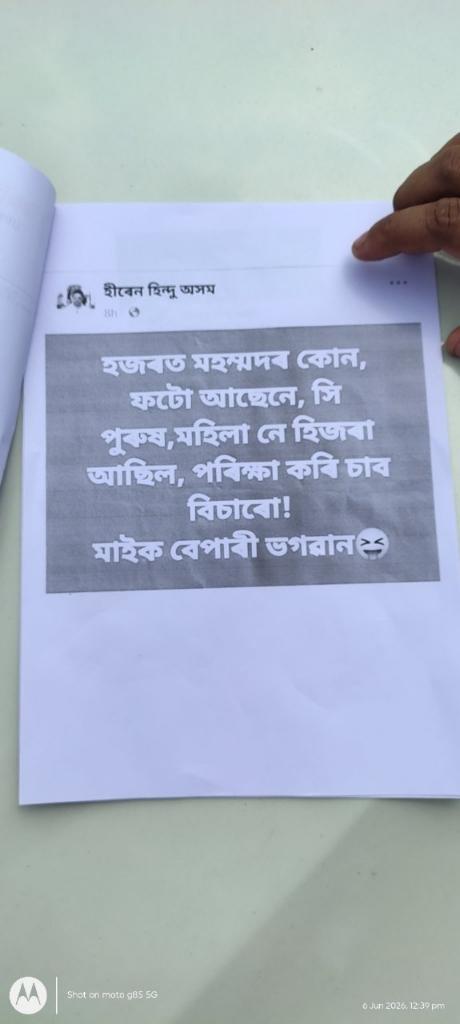 হীৰেন হিন্দু অসম
8h
হজৰত মহম্মদৰ কোন,
ফটো আছেনে, সি
পুৰুষ,মহিলা নে হিজৰা
আছিল, পৰিক্ষা কৰি চাব
বিচাৰো!
মাইক বেপাৰী ভগৱান😆
Shot on moto g85 5G
6 Jun 2026, 12:39 pm